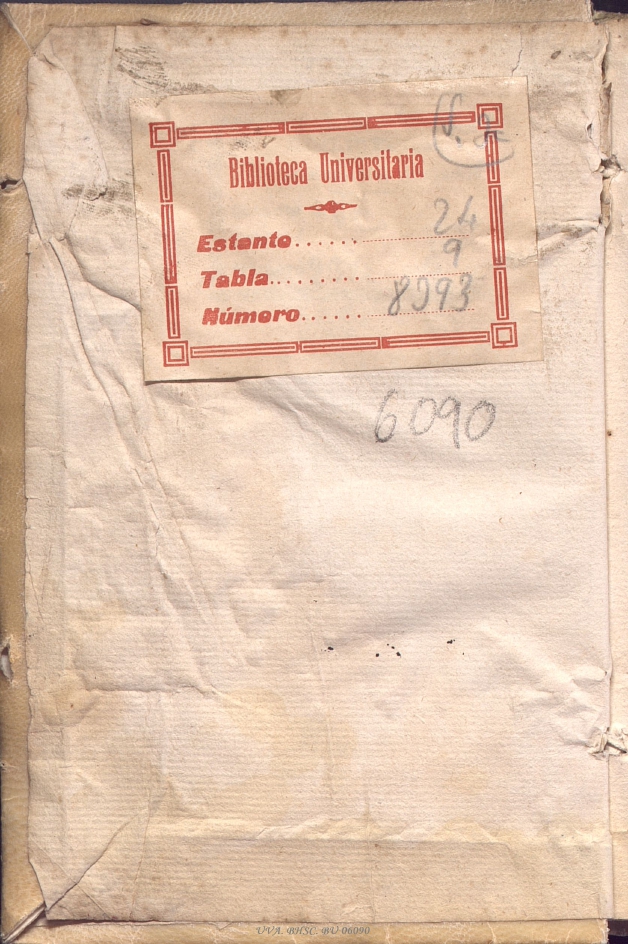 Biblioteca Universitaria
Estante...... 24
Tabla......... 9
Número...... 8993
6090
UVA. BHSC. BU 06090